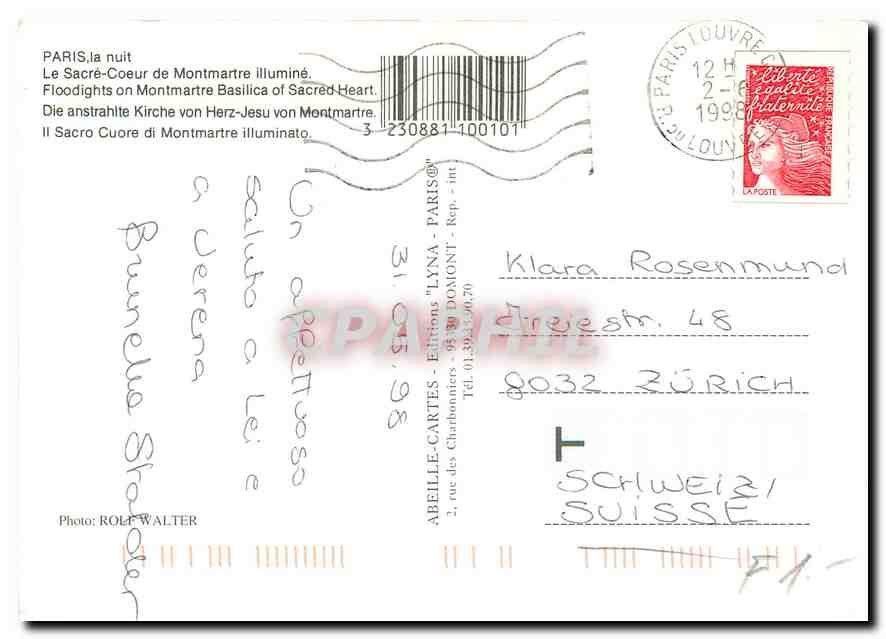 PARIS,la nuit
Le Sacré-Coeur de Montmartre illuminé.
Floodights on Montmartre Basilica of Sacred Heart.
Die anstrahlte Kirche von Herz-Jesu von Montmartre.
Il Sacro Cuore di Montmartre illuminato.
3 230881 100101
PARIS LOUVRE
12 H
2-6
1998
R. DU LOUVRE
liberté
égalité
fraternité
RÉPUBLIQUE FRANÇAISE
LA POSTE
31.05.98
Un affettuoso
saluto a Lei e
a Verena
Brunella
ABEILLE-CARTES - Editions "LYNA - PARIS®"
2, rue des Charbonniers - 95330 DOMONT - Rep. - int
Tél. 01.39.35.90.70
Klara Rosenmund
48
8032 ZÜRICH
T
SCHWEIZ/
SUISSE
Photo: ROLF WALTER
F 1.-
CPAPHIL